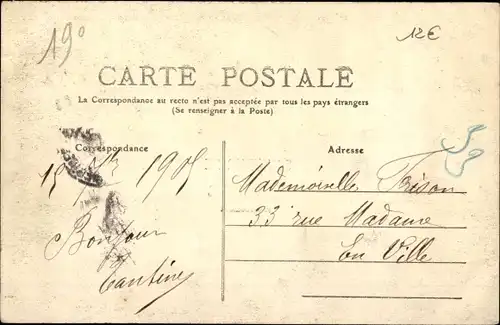 19°
12€
CARTE POSTALE
La Correspondance au recto n'est pas acceptée par tous les pays étrangers
(Se renseigner à la Poste)
Correspondance
Adresse
1905
Bonjour
Tantine
Mademoiselle Frison
33 rue Madame
En Ville
53